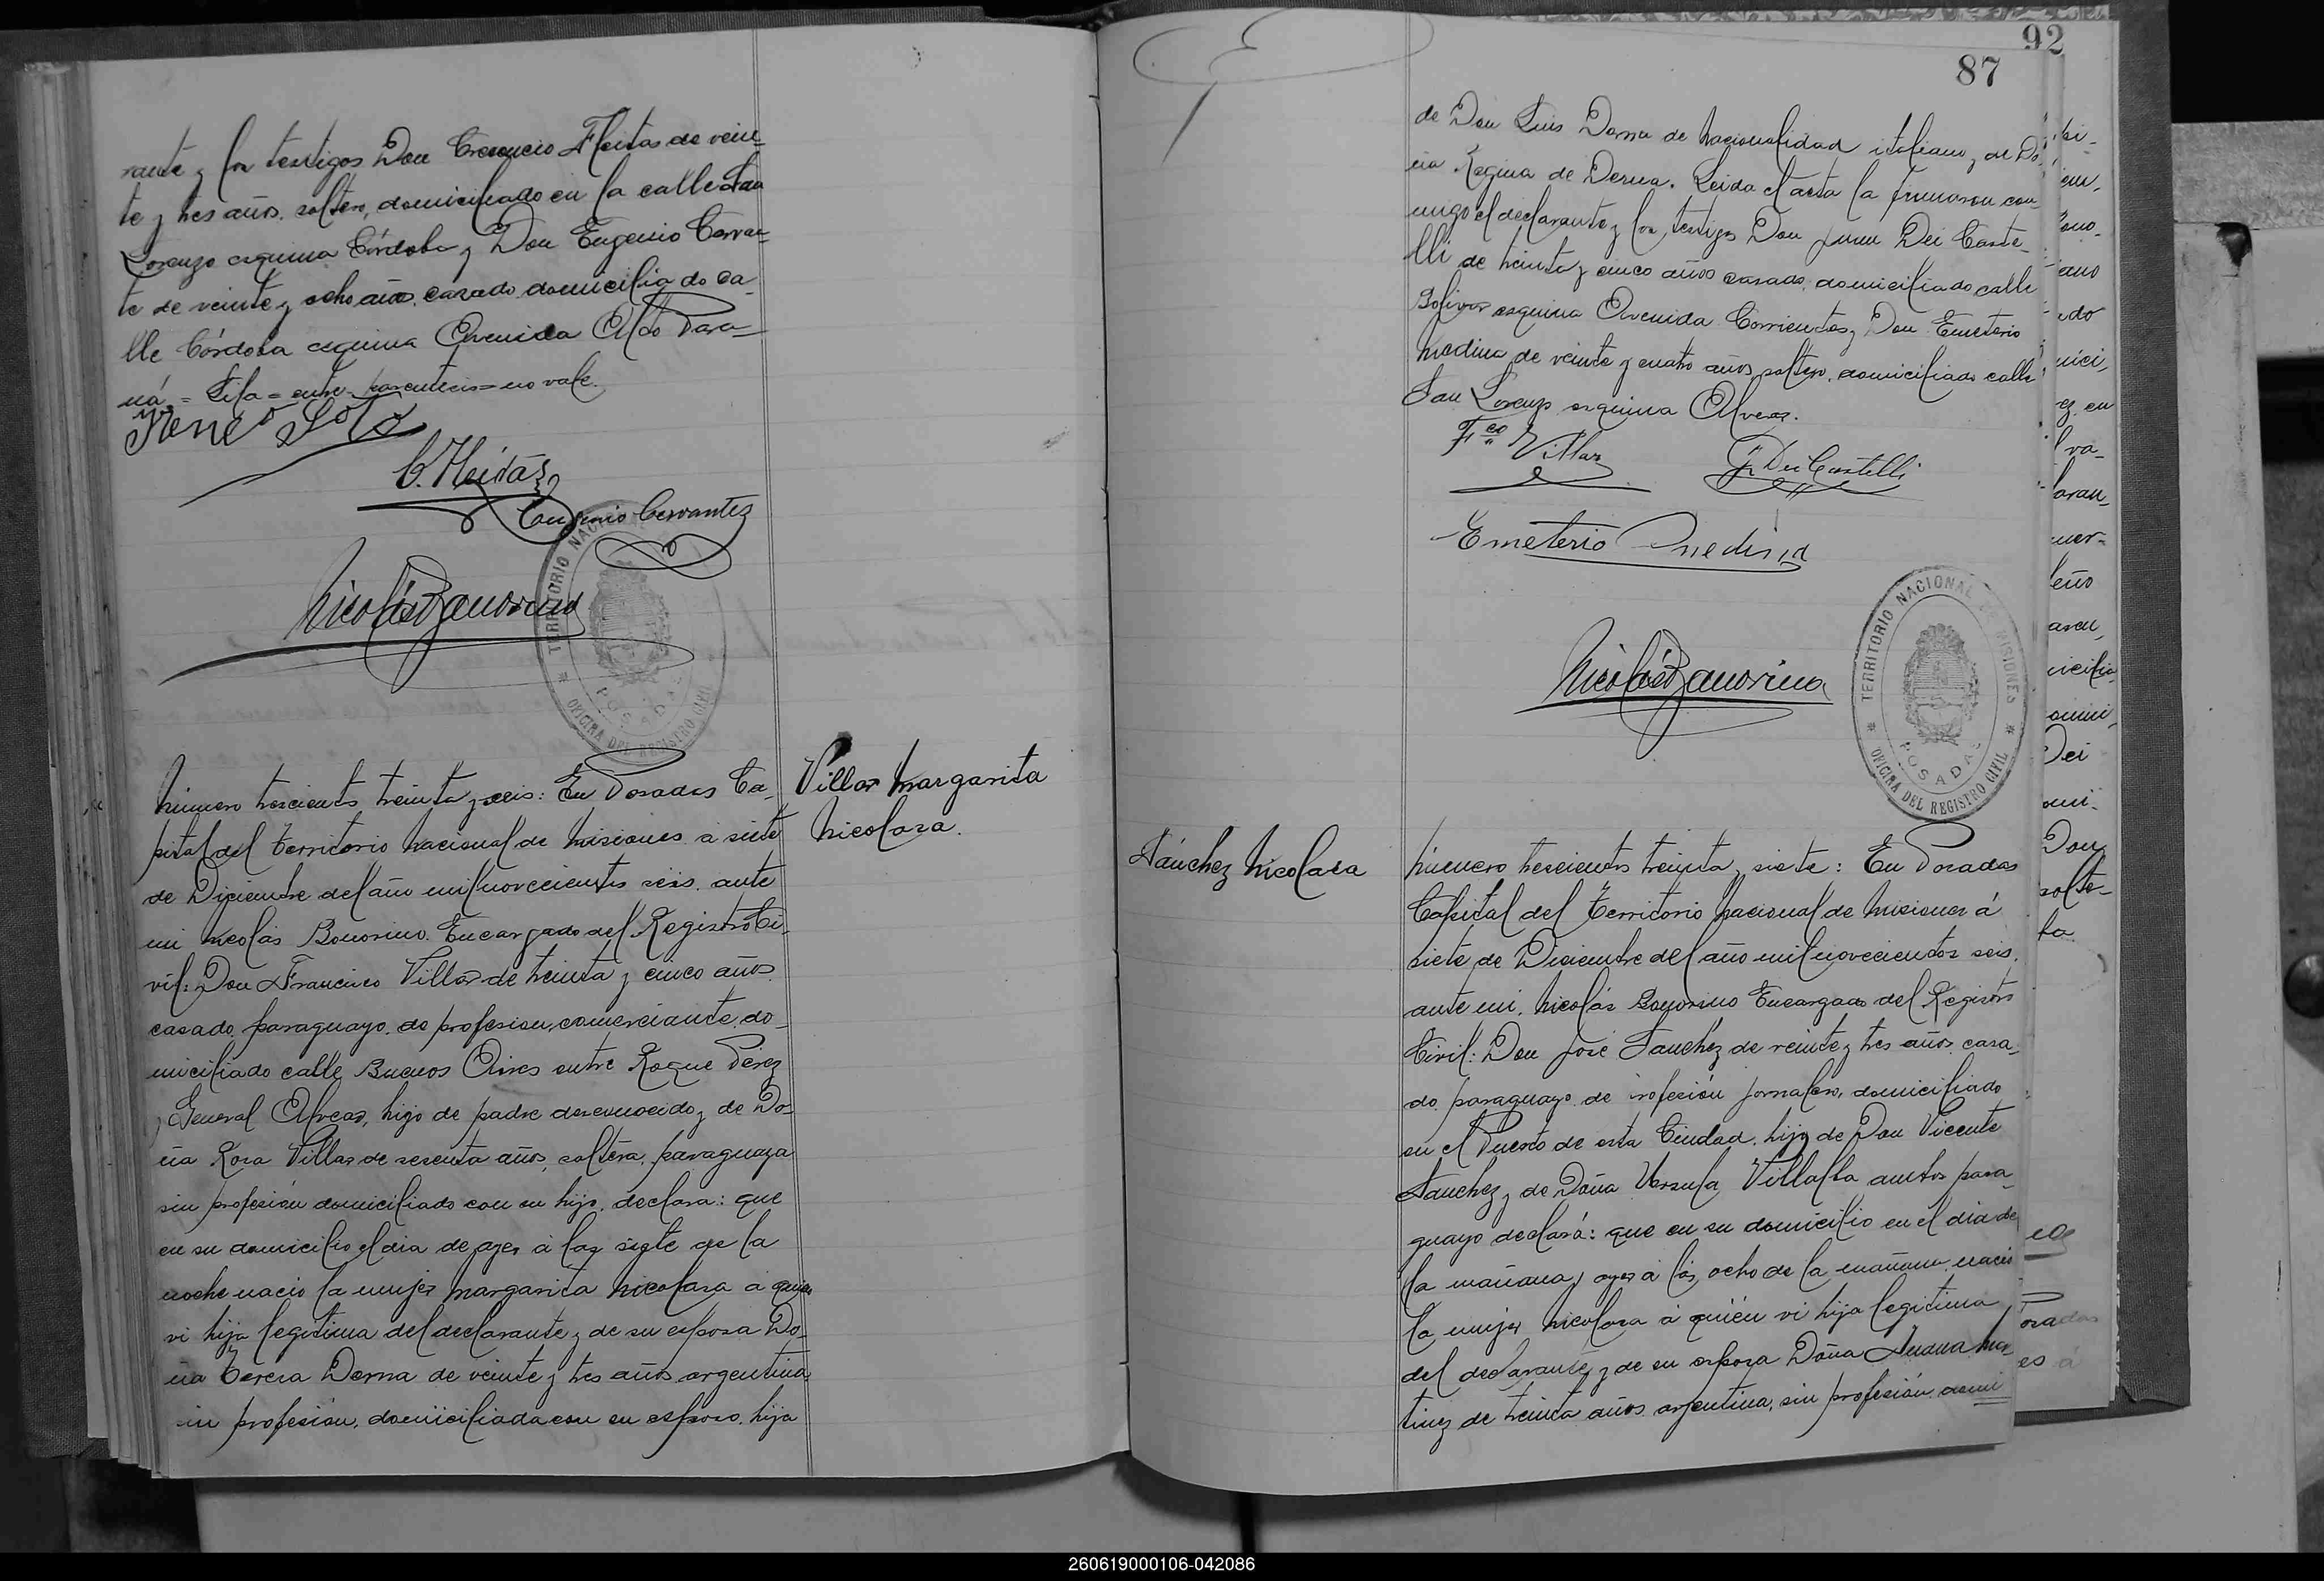 rante y los testigos Don Cresencio Fleitas de vein-
te y tres años, soltero, domiciliado en la calle San
Lorenzo esquina Córdoba y Don Eugenio Cervan-
te de veinte y ocho años, casado, domiciliado ca-
lle Córdoba esquina Avenida Alto Para-
ná. = entre parentecis = no vale.
Irene Soto
C. Fleitas
Eugenio Cervantez
Nicolás Bonorino
TERRITORIO NACIONAL
POSADAS
OFICINA DEL REGISTRO CIVIL
Villar Margarita
Nicolasa.
Número trescientos treinta y seis: En Posadas Ca-
pital del Territorio Nacional de Misiones a siete
de Diciembre del año mil novecientos seis, ante
mi Nicolás Bonorino. Encargado del Registro Ci-
vil: Don Francisco Villar de treinta y cinco años
casado, paraguayo, de profesion comerciante, do-
miciliado calle Buenos Aires entre Roque Perez
y General Alvear, hijo de padre desconocido y de Do-
ña Rosa Villar de sesenta años, soltera, paraguaya
sin profesión domiciliado con su hijo, declara: que
en su domicilio el dia de ayer á las siete de la
noche nació la mujer Margarita Nicolasa a quien
vi hija legitima del declarante y de su esposa Do-
ña Teresa Derna de veinte y tres años argentina
sin profesión, domiciliada con su esposo, hija
92
87
de Don Luis Derna de nacionalidad italiano y de Do-
ña Regina de Derna. Leida el acta la firmaron con-
migo el declarante y los testigos Don Juan Dei Caste-
lli de treinta y cinco años casado, domiciliado calle
Bolivar esquina Avenida Corrientes y Don Emeterio
Medina de veinte y cuatro años, soltero, domiciliado calle
San Lorenzo esquina Alvear.
Fco Villar
J. Dei Castelli
Emeterio Medina
Nicolás Bonorino
TERRITORIO NACIONAL DE MISIONES
POSADAS
OFICINA DEL REGISTRO CIVIL
Sánchez Nicolasa
Número trescientos treinta y siete: En Posadas
Capital del Territorio Nacional de Misiones á
siete de Diciembre del año mil novecientos seis,
ante mi, Nicolás Bonorino Encargado del Registro
Civil: Don José Sanchez de veinte y tres años, casa-
do, paraguayo, de profesión jornalero, domiciliado
en el Puerto de esta Ciudad, hijo de Don Vicente
Sanchez y de Doña Ursula Villalba ambos para-
guayo declará: que en su domicilio en el dia de
la mañana y ayer á las ocho de la mañana nació
la mujer Nicolasa á quién vi hija legitima
del declarante y de su esposa Doña Juana Mar-
tinez de treinta años argentina, sin profesión, domi
260619000106-042086